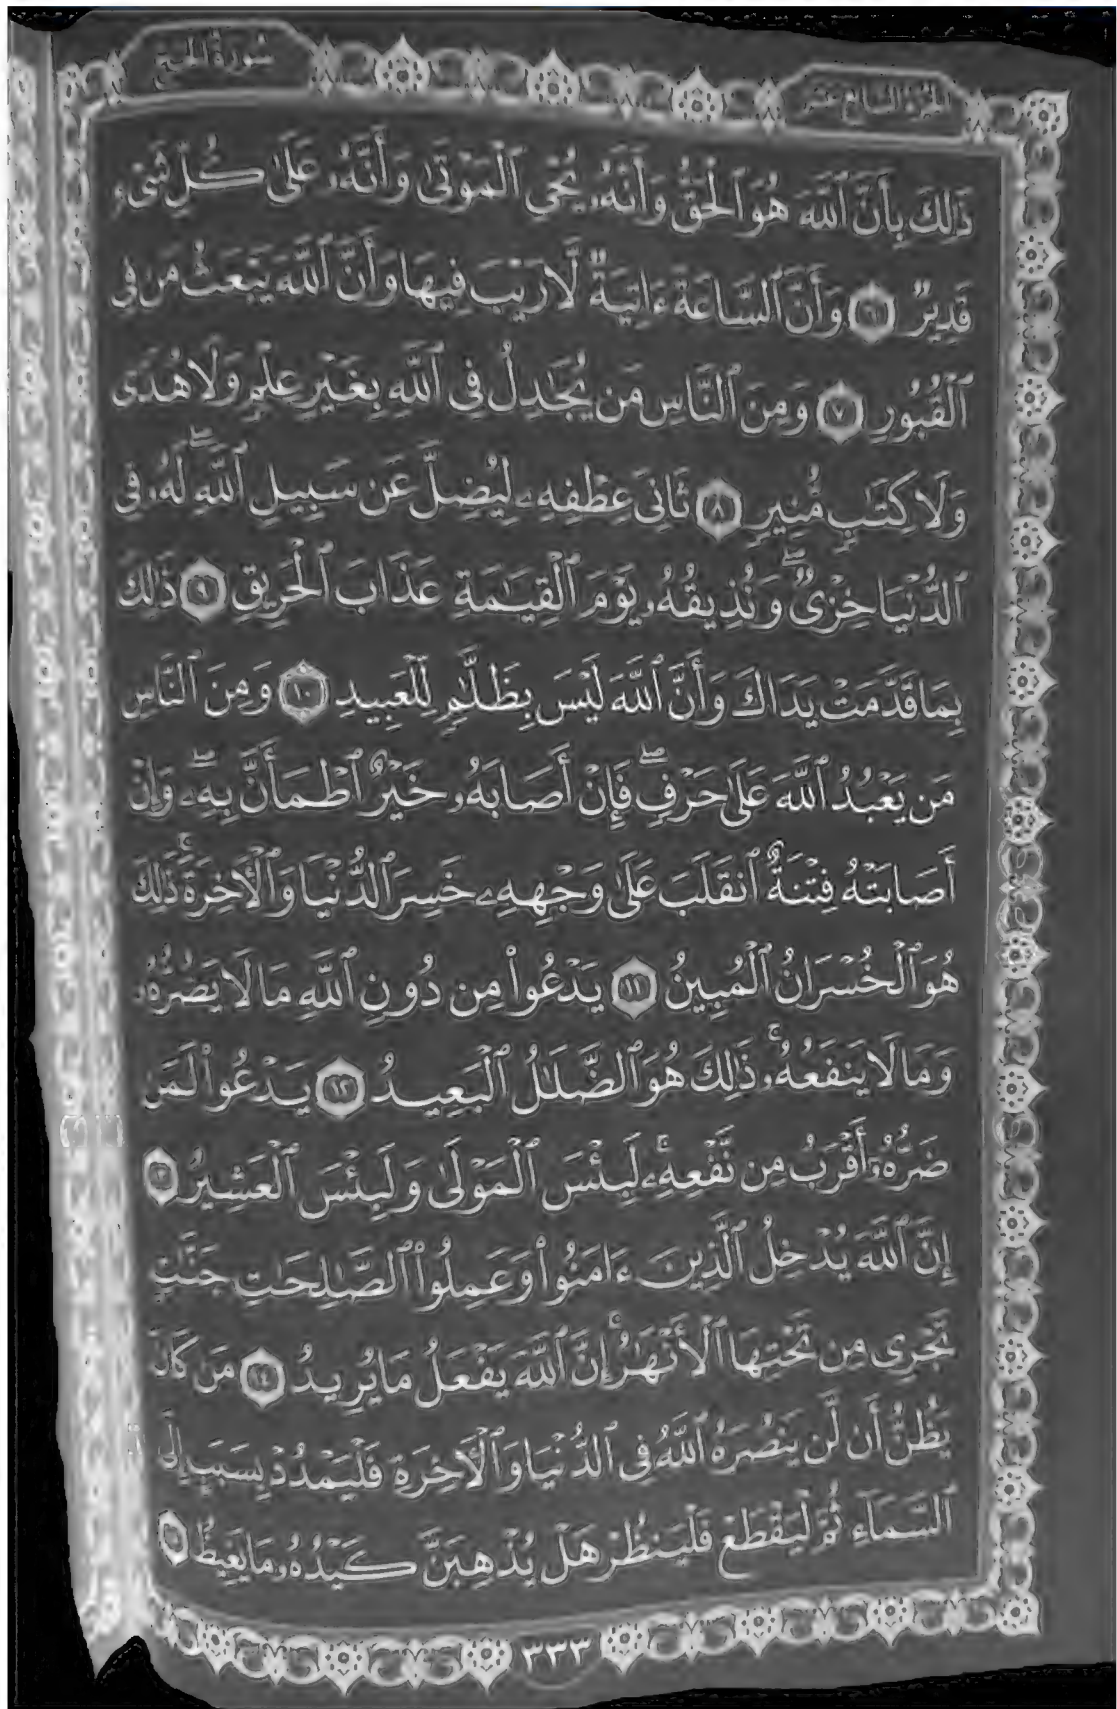 سُورَةُ الحَجّ
الجُزْءُ السَّابِعَ عَشَرَ
ذَٰلِكَ بِأَنَّ ٱللَّهَ هُوَ ٱلْحَقُّ وَأَنَّهُۥ يُحْىِ ٱلْمَوْتَىٰ وَأَنَّهُۥ عَلَىٰ كُلِّ شَىْءٍ
قَدِيرٌ ٦ وَأَنَّ ٱلسَّاعَةَ ءَاتِيَةٌ لَّا رَيْبَ فِيهَا وَأَنَّ ٱللَّهَ يَبْعَثُ مَن فِى
ٱلْقُبُورِ ٧ وَمِنَ ٱلنَّاسِ مَن يُجَٰدِلُ فِى ٱللَّهِ بِغَيْرِ عِلْمٍ وَلَا هُدًى
وَلَا كِتَٰبٍ مُّنِيرٍ ٨ ثَانِىَ عِطْفِهِۦ لِيُضِلَّ عَن سَبِيلِ ٱللَّهِ ۖ لَهُۥ فِى
ٱلدُّنْيَا خِزْىٌ ۖ وَنُذِيقُهُۥ يَوْمَ ٱلْقِيَٰمَةِ عَذَابَ ٱلْحَرِيقِ ٩ ذَٰلِكَ
بِمَا قَدَّمَتْ يَدَاكَ وَأَنَّ ٱللَّهَ لَيْسَ بِظَلَّٰمٍ لِّلْعَبِيدِ ١٠ وَمِنَ ٱلنَّاسِ
مَن يَعْبُدُ ٱللَّهَ عَلَىٰ حَرْفٍ ۖ فَإِنْ أَصَابَهُۥ خَيْرٌ ٱطْمَأَنَّ بِهِۦ ۖ وَإِنْ
أَصَابَتْهُ فِتْنَةٌ ٱنقَلَبَ عَلَىٰ وَجْهِهِۦ خَسِرَ ٱلدُّنْيَا وَٱلْءَاخِرَةَ ۚ ذَٰلِكَ
هُوَ ٱلْخُسْرَانُ ٱلْمُبِينُ ١١ يَدْعُوا۟ مِن دُونِ ٱللَّهِ مَا لَا يَضُرُّهُۥ
وَمَا لَا يَنفَعُهُۥ ۚ ذَٰلِكَ هُوَ ٱلضَّلَٰلُ ٱلْبَعِيدُ ١٢ يَدْعُوا۟ لَمَن
ضَرُّهُۥٓ أَقْرَبُ مِن نَّفْعِهِۦ ۚ لَبِئْسَ ٱلْمَوْلَىٰ وَلَبِئْسَ ٱلْعَشِيرُ ١٣
إِنَّ ٱللَّهَ يُدْخِلُ ٱلَّذِينَ ءَامَنُوا۟ وَعَمِلُوا۟ ٱلصَّٰلِحَٰتِ جَنَّٰتٍ
تَجْرِى مِن تَحْتِهَا ٱلْأَنْهَٰرُ ۚ إِنَّ ٱللَّهَ يَفْعَلُ مَا يُرِيدُ ١٤ مَن كَانَ
يَظُنُّ أَن لَّن يَنصُرَهُ ٱللَّهُ فِى ٱلدُّنْيَا وَٱلْءَاخِرَةِ فَلْيَمْدُدْ بِسَبَبٍ إِلَى
ٱلسَّمَآءِ ثُمَّ لْيَقْطَعْ فَلْيَنظُرْ هَلْ يُذْهِبَنَّ كَيْدُهُۥ مَا يَغِيظُ ١٥
٣٣٣